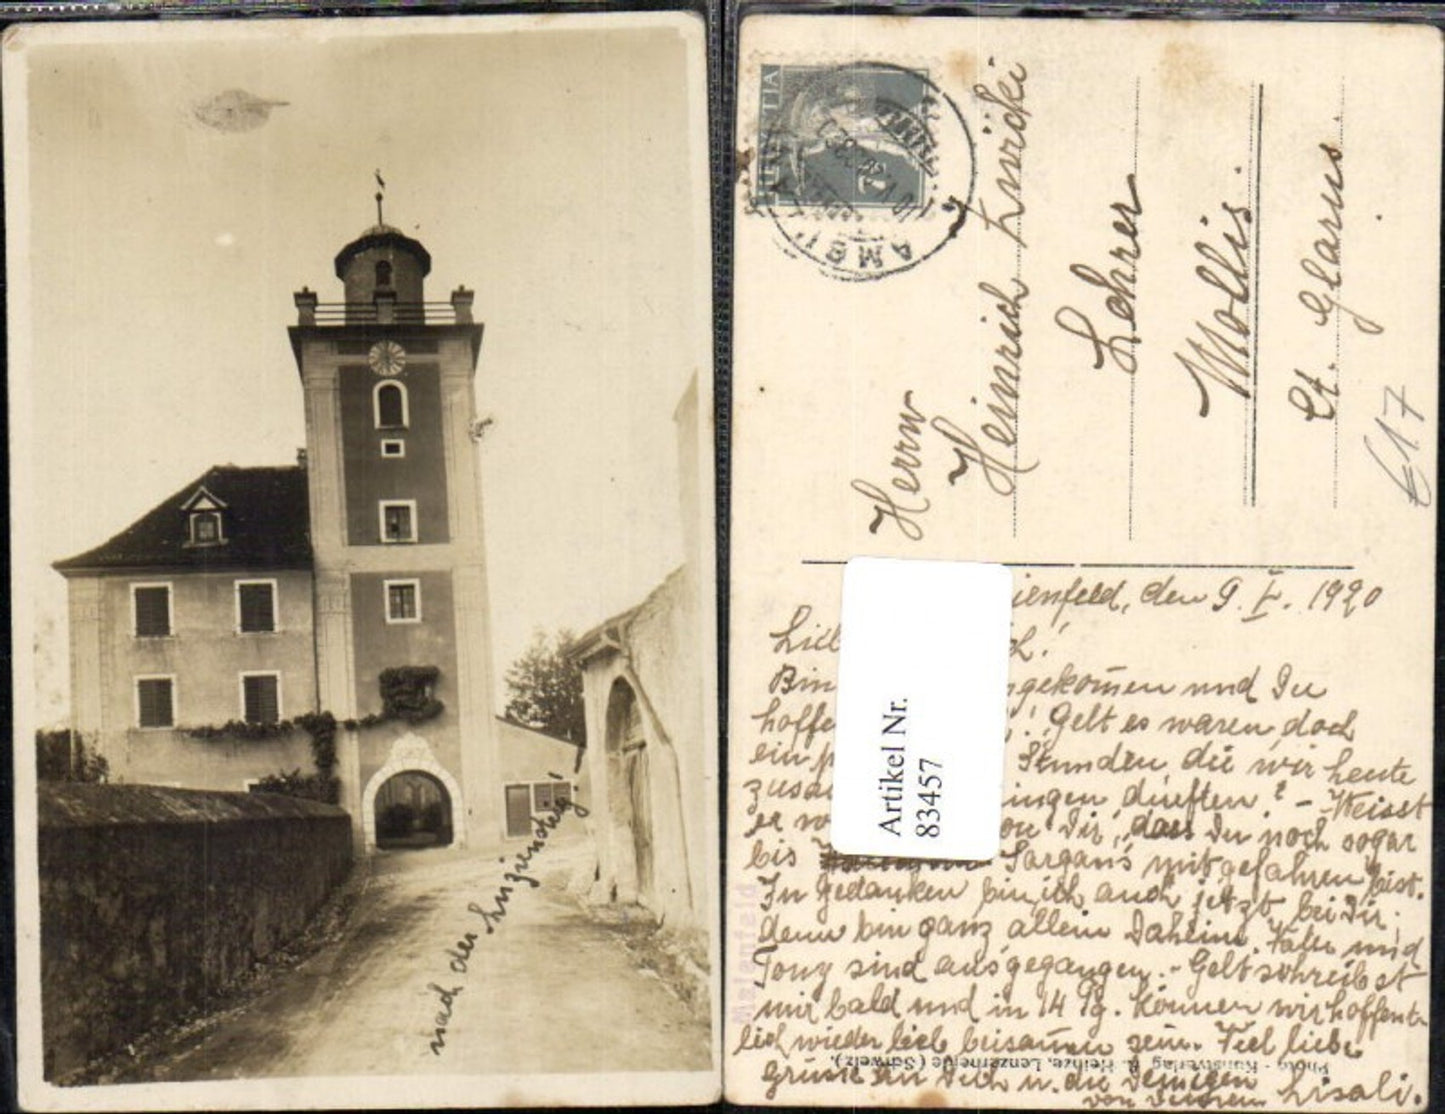 nach der Luziensteig!
HELVETIA
AMBU
Herrn
Heinrich Zwicki
Lehrer
Mollis.
Ct. Glarus.
€17
Artikel Nr.
83457
ienfeld, den 9. V. 1920
Bin gekommen und Du
hoffe ! Gelt es waren doch
ein Stunden, die wir heute
zusa ingen durften? - Weisst
er von Dir, dass Du noch sogar
bis Sargans mitgefahren bist.
In Gedanken bin ich auch jetzt bei Dir,
denn bin ganz allein Daheim. Vater und
Tony sind ausgegangen. - Gelt schreibst
mir bald und in 14 Tg. können wir hoffent-
lich wieder lieb beisammen sein. Viel liebe
Grüsse an Dich u. die Deinigen
von Lisali.
Maienfeld
Photo - Kunstverlag R. Heinze, Lenzerheide (Schweiz).